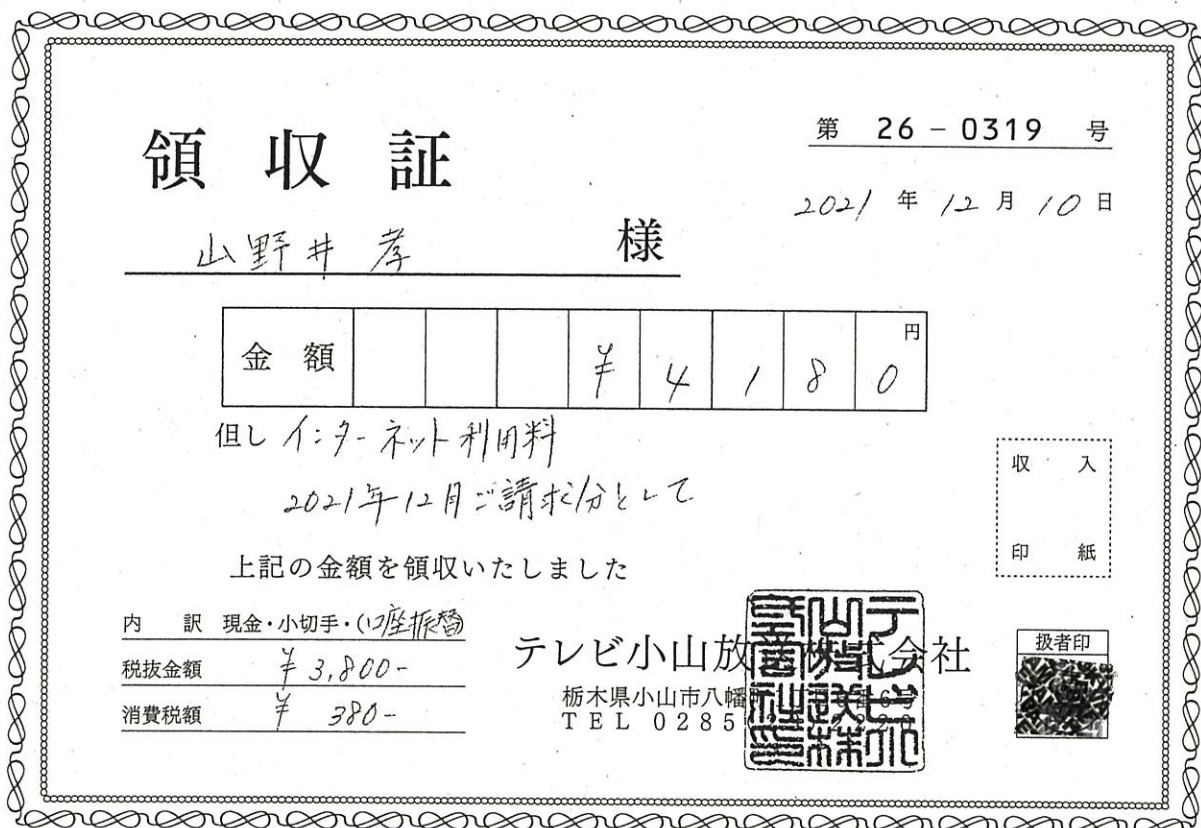 第 26-0319 号
領収証
2021 年 12 月 10 日
山野井 孝 様
金額 ¥ 4 1 8 0 円
但し インターネット利用料
2021年12月ご請求分として
上記の金額を領収いたしました
収入
印紙
内訳 現金・小切手・(口座振替)
税抜金額 ¥3,800-
消費税額 ¥ 380-
テレビ小山放送株式会社
栃木県小山市八幡
TEL 0285
扱者印